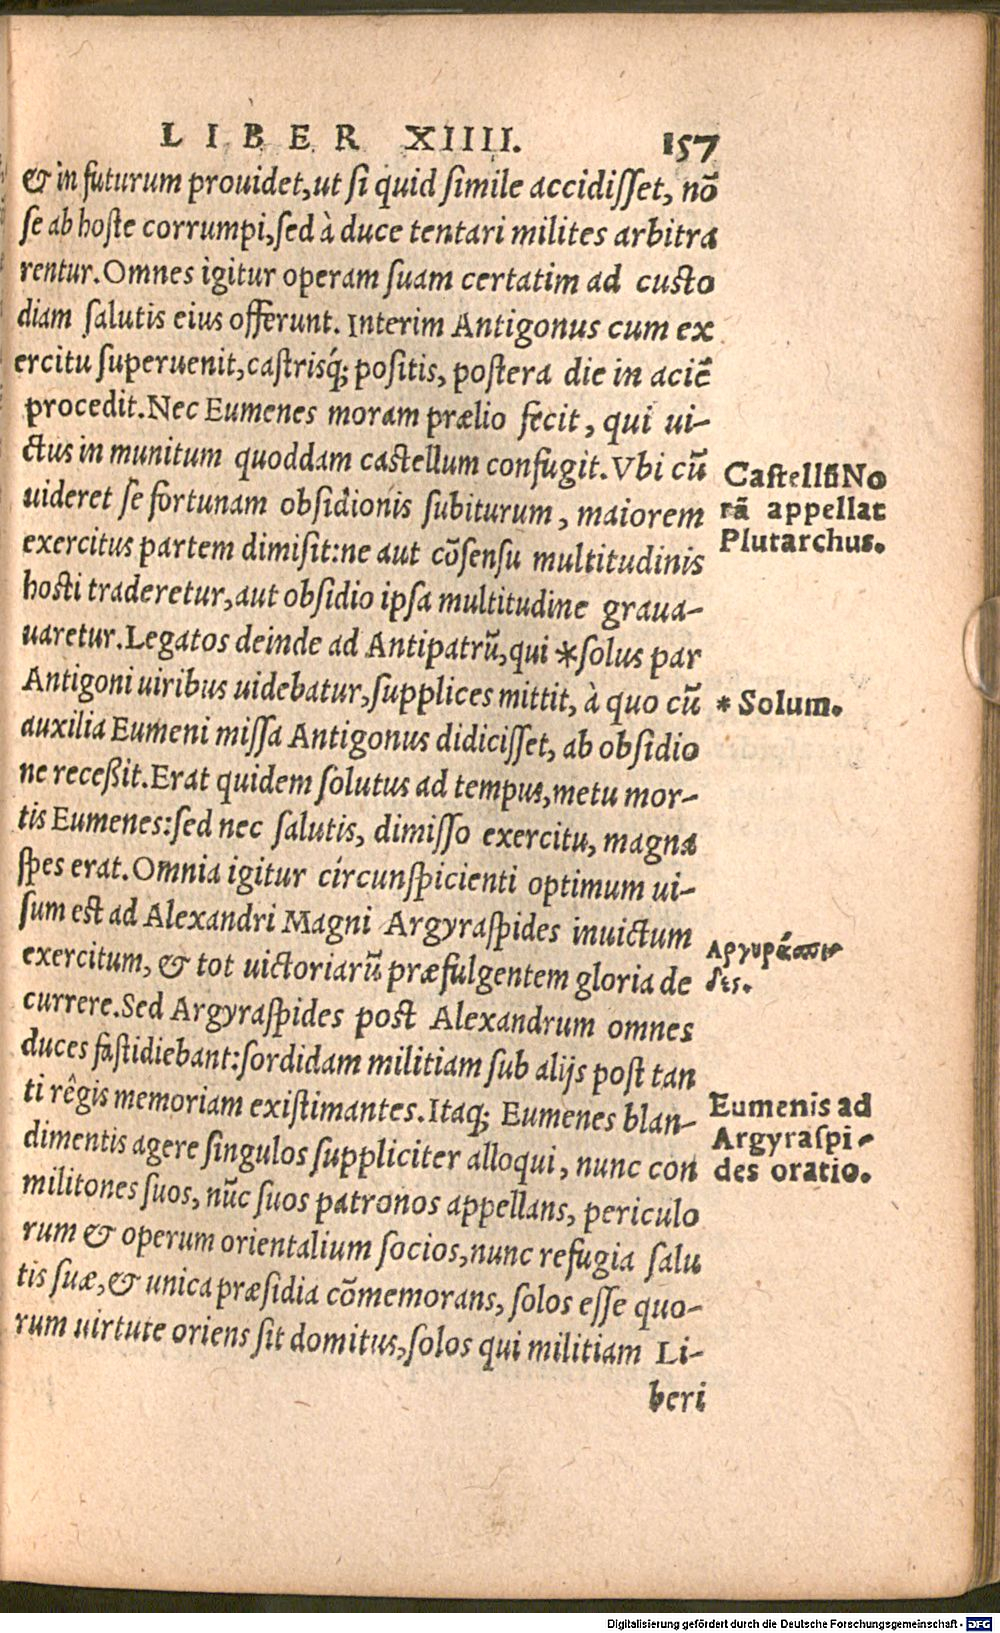 LIBER XIIII. 157
& in futurum prouidet, ut si quid simile accidisset, nō
se ab hoste corrumpi, sed à duce tentari milites arbitra
rentur. Omnes igitur operam suam certatim ad custo
diam salutis eius offerunt. Interim Antigonus cum ex
ercitu superuenit, castrisq́; positis, postera die in aciē
procedit. Nec Eumenes moram prælio fecit, qui ui-
ctus in munitum quoddam castellum confugit. Vbi cū
uideret se fortunam obsidionis subiturum, maiorem
exercitus partem dimisit: ne aut cōsensu multitudinis
hosti traderetur, aut obsidio ipsa multitudine graua-
uaretur. Legatos deinde ad Antipatrū, qui *solus par
Antigoni uiribus uidebatur, supplices mittit, à quo cū
auxilia Eumeni missa Antigonus didicisset, ab obsidio
ne receßit. Erat quidem solutus ad tempus, metu mor-
tis Eumenes: sed nec salutis, dimisso exercitu, magna
spes erat. Omnia igitur circunspicienti optimum ui-
sum est ad Alexandri Magni Argyraspides inuictum
exercitum, & tot uictoriarū præfulgentem gloria de
currere. Sed Argyraspides post Alexandrum omnes
duces fastidiebant: sordidam militiam sub alijs post tan
ti rêgis memoriam existimantes. Itaq; Eumenes blan-
dimentis agere singulos suppliciter alloqui, nunc con
militones suos, nūc suos patronos appellans, periculo
rum & operum orientalium socios, nunc refugia salu
tis suæ, & unica præsidia cōmemorans, solos esse quo-
rum uirtute oriens sit domitus, solos qui militiam Li-
beri
Castellū No
rā appellat
Plutarchus.
* Solum.
Αργυράσπι
δες.
Eumenis ad
Argyraspi-
des oratio.
Digitalisierung gefördert durch die Deutsche Forschungsgemeinschaft - DFG